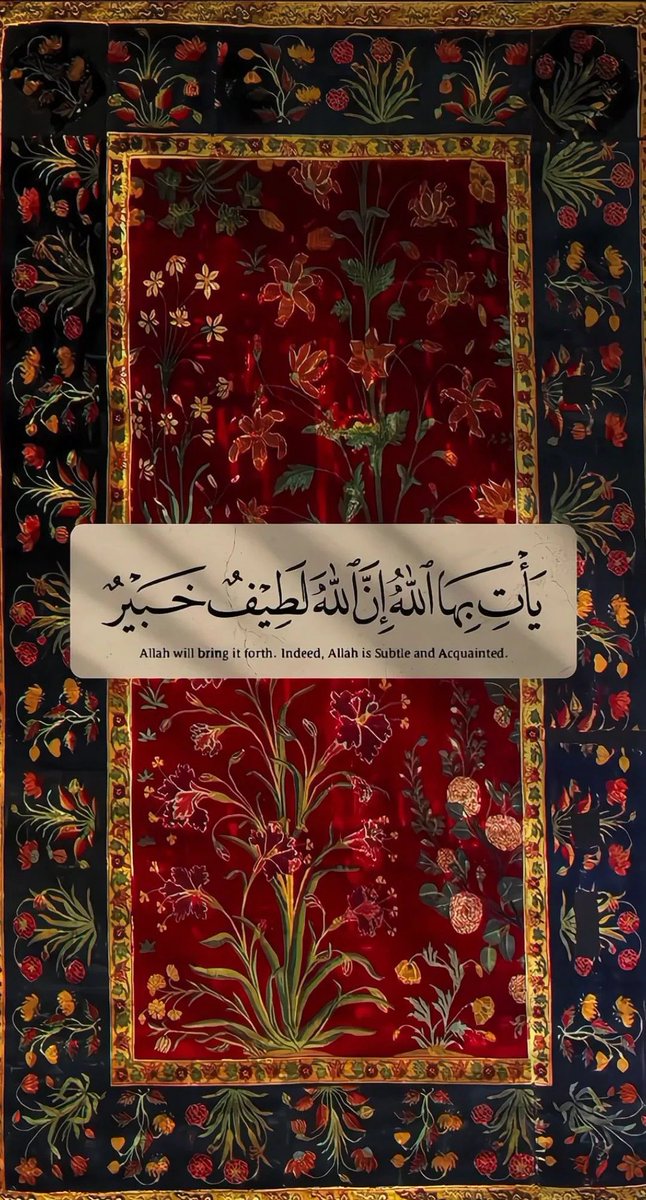 يَأْتِ بِهَا ٱللَّهُ إِنَّ ٱللَّهَ لَطِيْفٌ خَبِيْرٌ
Allah will bring it forth. Indeed, Allah is Subtle and Acquainted.